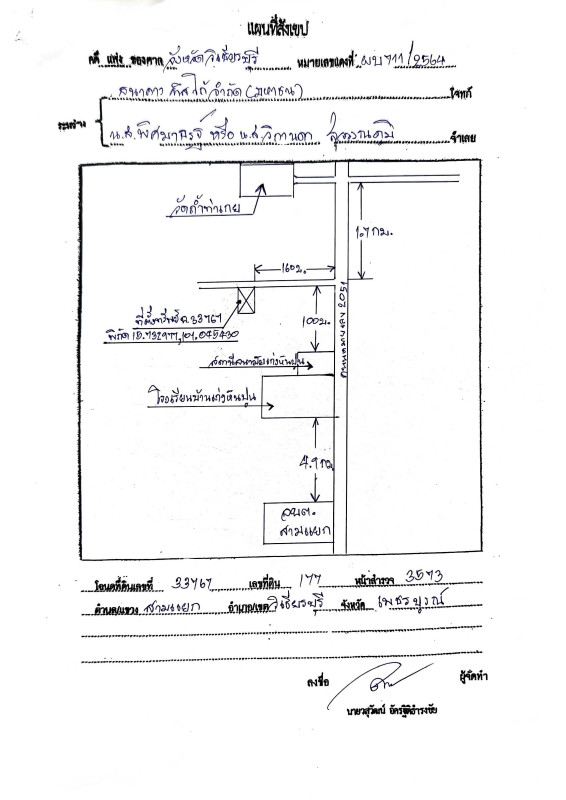 แผนที่สังเขป
คดี แพ่ง ของศาล จังหวัดวิเชียรบุรี หมายเลขแดงที่ ผบ711/2564
ธนาคาร จำกัด (มหาชน) โจทก์
ระหว่าง
น.ส. หรือ น.ส. จำเลย
วัดถ้ำท่าเกย
1.7 กม.
160ม.
ทางหลวงหมายเลข 2051
ที่ตั้งทรัพย์ ฉ.33767
พิกัด 15.732977,101.045430
100ม.
โรงเรียนบ้านแก่งหินปูน
4.9 กม.
อบต.
สามแยก
โฉนดที่ดินเลขที่ 33767 เลขที่ดิน 177 หน้าสำรวจ 3573
ตำบล/แขวง สามแยก อำเภอ/เขต วิเชียรบุรี จังหวัด เพชรบูรณ์
ลงชื่อ ผู้จัดทำ
นายวสุวัฒน์ อัครฐิติธำรงชัย